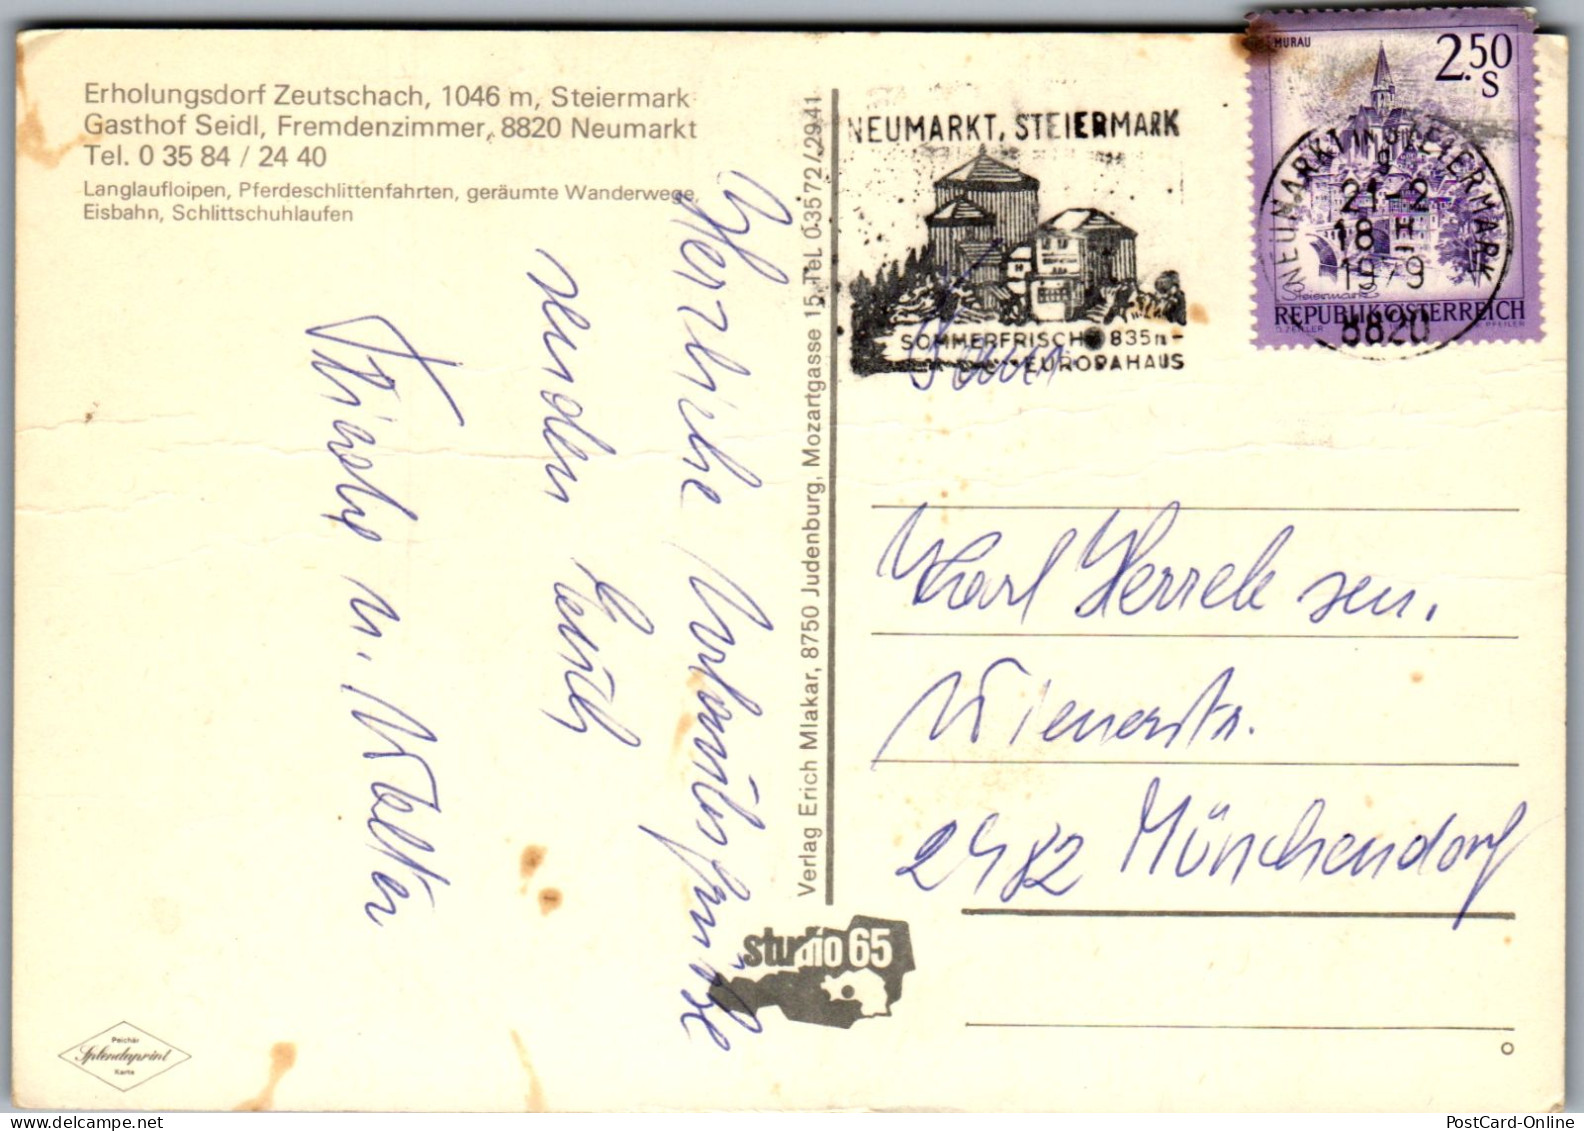 Erholungsdorf Zeutschach, 1046 m, Steiermark
Gasthof Seidl, Fremdenzimmer, 8820 Neumarkt
Tel. 0 35 84 / 24 40
Langlaufloipen, Pferdeschlittenfahrten, geräumte Wanderwege,
Eisbahn, Schlittschuhlaufen
Herzliche Urlaubsgrüße
senden Euch
u. Walter
Verlag Erich Mlakar, 8750 Judenburg, Mozartgasse 15, Tel. 03572/2941
NEUMARKT, STEIERMARK
SOMMERFRISCHE 835m-
EUROPAHAUS
MURAU
2.50
S
Steiermark
REPUBLIK ÖSTERREICH
NEUMARKT IN STEIERMARK
9
21-2
18 H
1979
8820
Karl Herrek sen.
Wienerstr.
2482 Münchendorf
studio 65
Peichär
Splendaprint
Karte
PostCard-Online